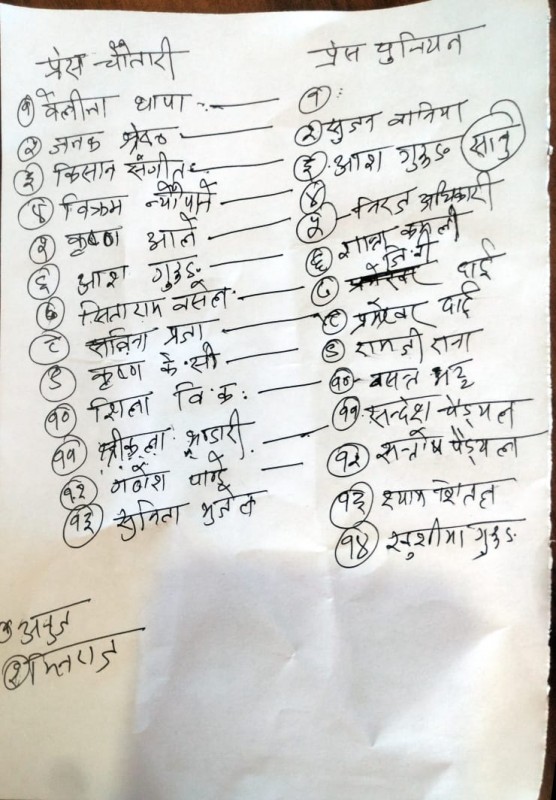 प्रेस चौतारी
१ वेलीना थापा
२ जनक श्रेष्ठ
३ किसान संगीत
४ विक्रम न्यौपाने
५ कृष्ण आले
६ आश गुरुङ
७ सिताराम वसेल
८ सविना प्रजा
९ कृष्ण के.सी
१० शिला वि.क.
११ श्रीकला भण्डारी
१२ गणेश पाण्डे
१३ सुनिता भुजेल
प्रेस युनियन
१
२ सुजन वानिया
३ आश गुरुङ सानु
४
५ अधिकारी
६
७
८ प्रमेश्वर दाई
९ रामजी राना
१० वसन्त भट्ट
११ सन्देश पौड्याल
१२ सन्तोष पौड्याल
१३ श्याम
१४ खुशीमा गुरुङ